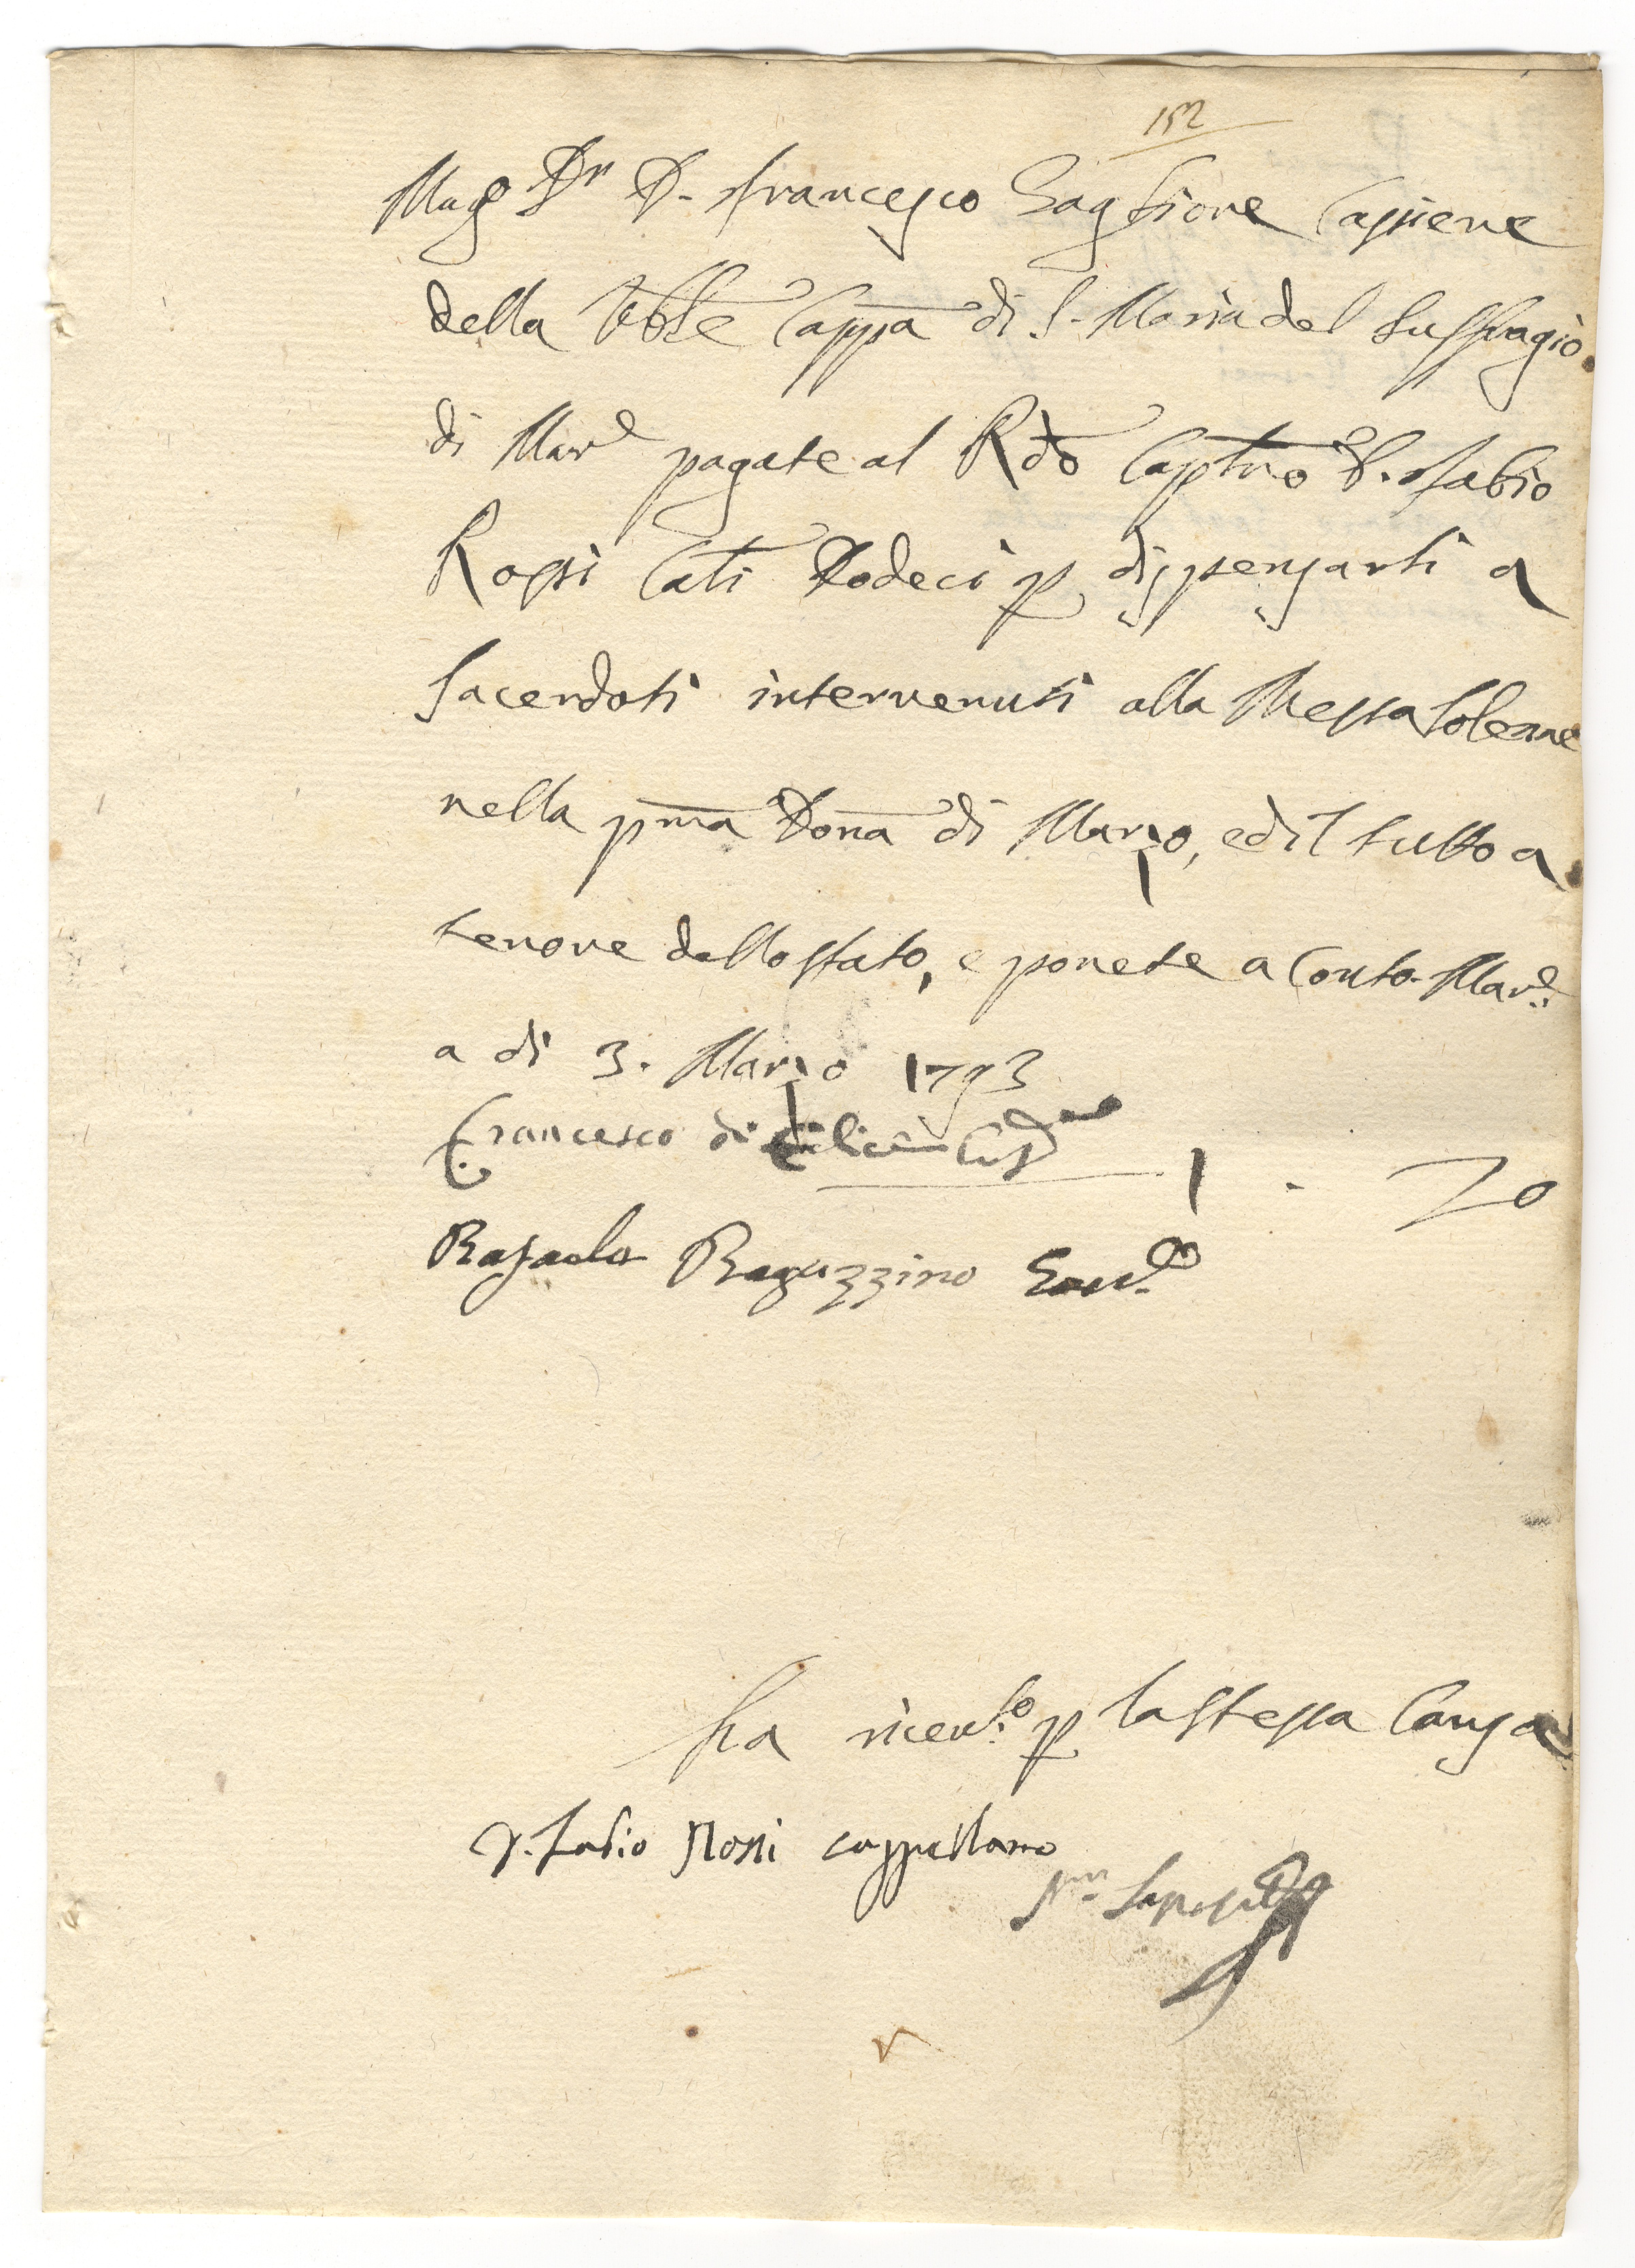 152
Mag.co Dr D. Francesco Gaglione Cassiere
della Vble Cappa di S. Maria del Suffragio
di Mar.e pagate al Rdo Capłno D. Fabio
Rossi Cāti Dodeci p dispensarli a
Sacerdoti intervenuti alla Messa Solenne
nella pma Dōna di Marzo, ed il tutto a
tenore dello stato, e ponete a Conto. Mar.e
a di 3. Marzo 1793
Francesco di
1 - 20
Rafaelo Raguzzino
ha ricev.to p la stessa Causa
D. Fabio Rossi cappellano